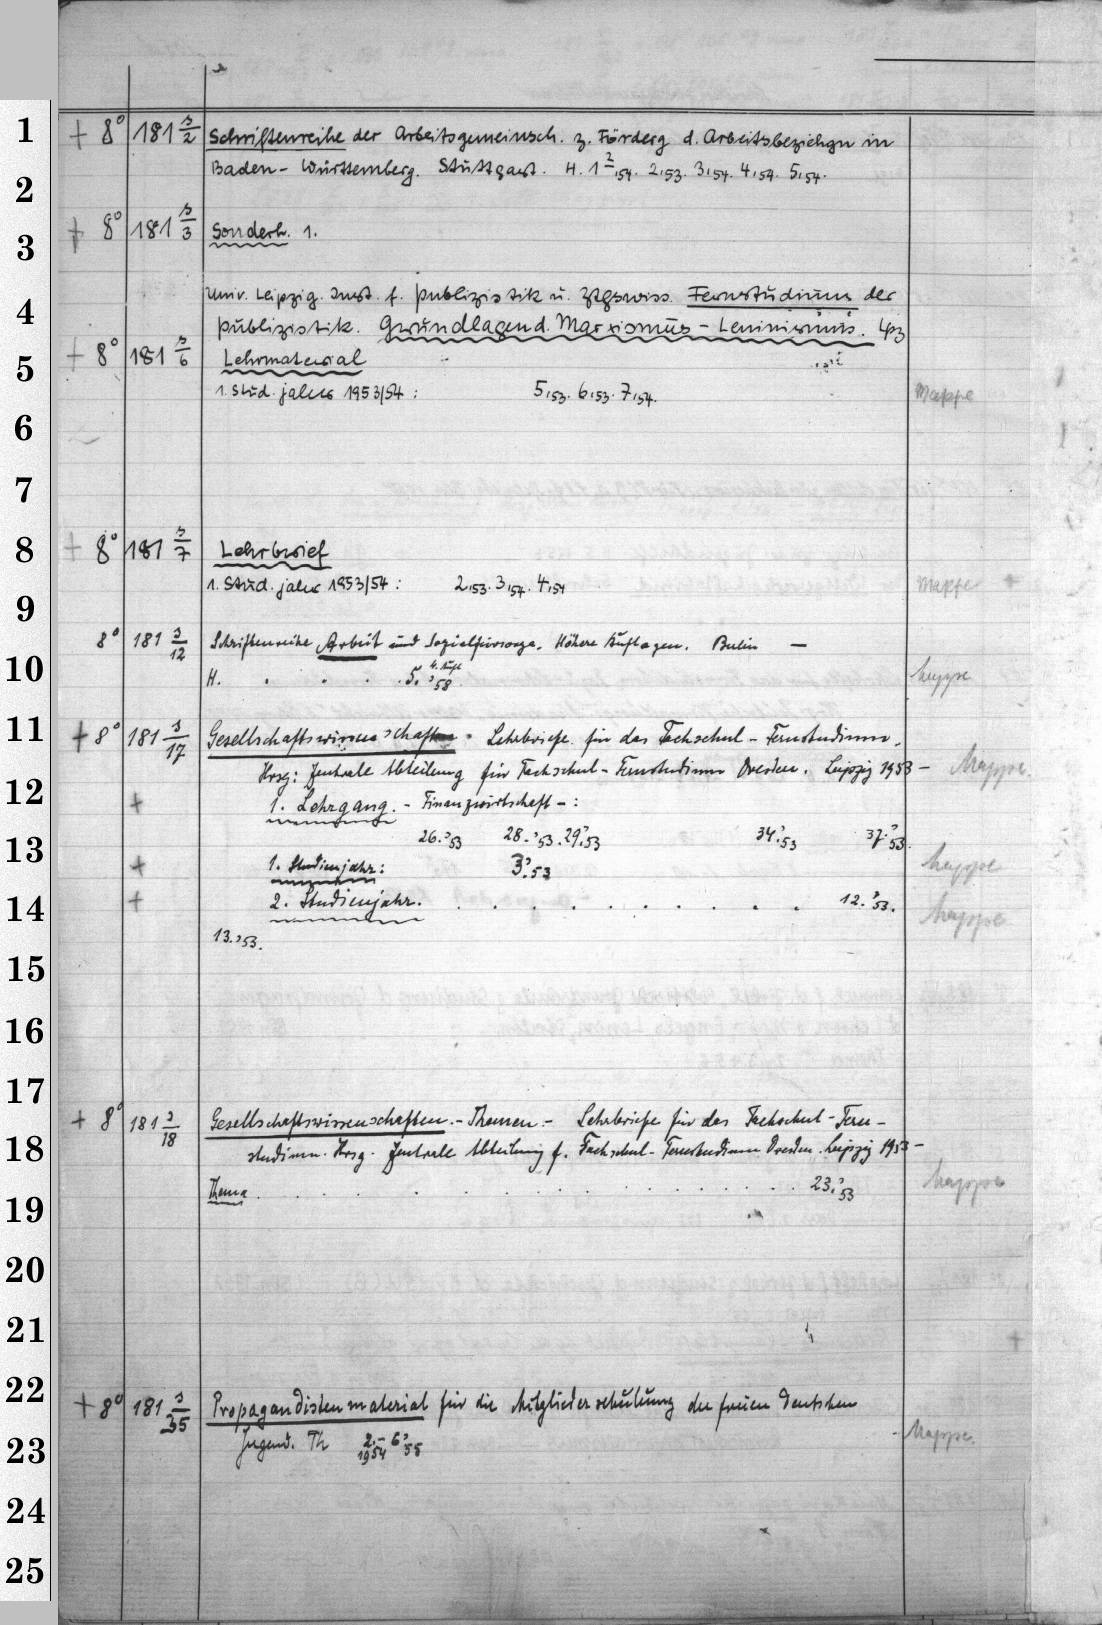 1
+ 8° 181 s/2 Schriftenreihe der Arbeitsgemeinsch. z. Förderg d. Arbeitsbeziehgn in
2
Baden-Württemberg. Stuttgart. H. 1 ²,54. 2,53. 3,54. 4,54. 5,54.
3
+ 8° 181 s/3 Sonderh. 1.
4
Univ. Leipzig. Inst. f. Publizistik u. Ztgswiss. Fernstudium der
Publizistik. Grundlagen d. Marxismus-Leninismus. Lpz
5
+ 8° 181 s/6 Lehrmaterial
1. Stud. jahr 1953/54: 5,53. 6,53. 7,54. Mappe
6
7
8
+ 8° 181 s/7 Lehrbrief
1. Stud. jahr 1953/54: 2,53. 3,54. 4,54 Mappe
9
8° 181 s/12 Schriftenreihe Arbeit und Sozialfürsorge. Höhere Auflagen. Berlin —
10
H. . . . . 5. 4. Aufl ’58. Mappe
11
+ 8° 181 s/17 Gesellschaftswissenschaften. Lehrbriefe für das Fachschul-Fernstudium.
Hrsg: Zentrale Abteilung für Fachschul-Fernstudium Dresden. Leipzig 1953– Mappe.
12
+ 1. Lehrgang. - Finanzwirtschaft -:
26.’53 28.’53. 29.’53 34.’53 37.’53.
13
+ 1. Studienjahr: 3.’53 Mappe
14
+ 2. Studienjahr. . . . . . . . . . . 12.’53. Mappe
13.’53.
15
16
17
+ 8° 181 s/18 Gesellschaftswissenschaften.- Themen.- Lehrbriefe für das Fachschul-Fern-
18
studium. Hrsg. Zentrale Abteilung f. Fachschul-Fernstudium Dresden. Leipzig 1953–
19
Thema . . . . . . . . . . . . . . . . 23.’53 Mappe
20
21
22
+ 8° 181 s/35 Propagandistenmaterial für die Mitgliederschulung der freien Deutschen
23
Jugend. Th 2.- 1954 6.’55 Mappe.
24
25